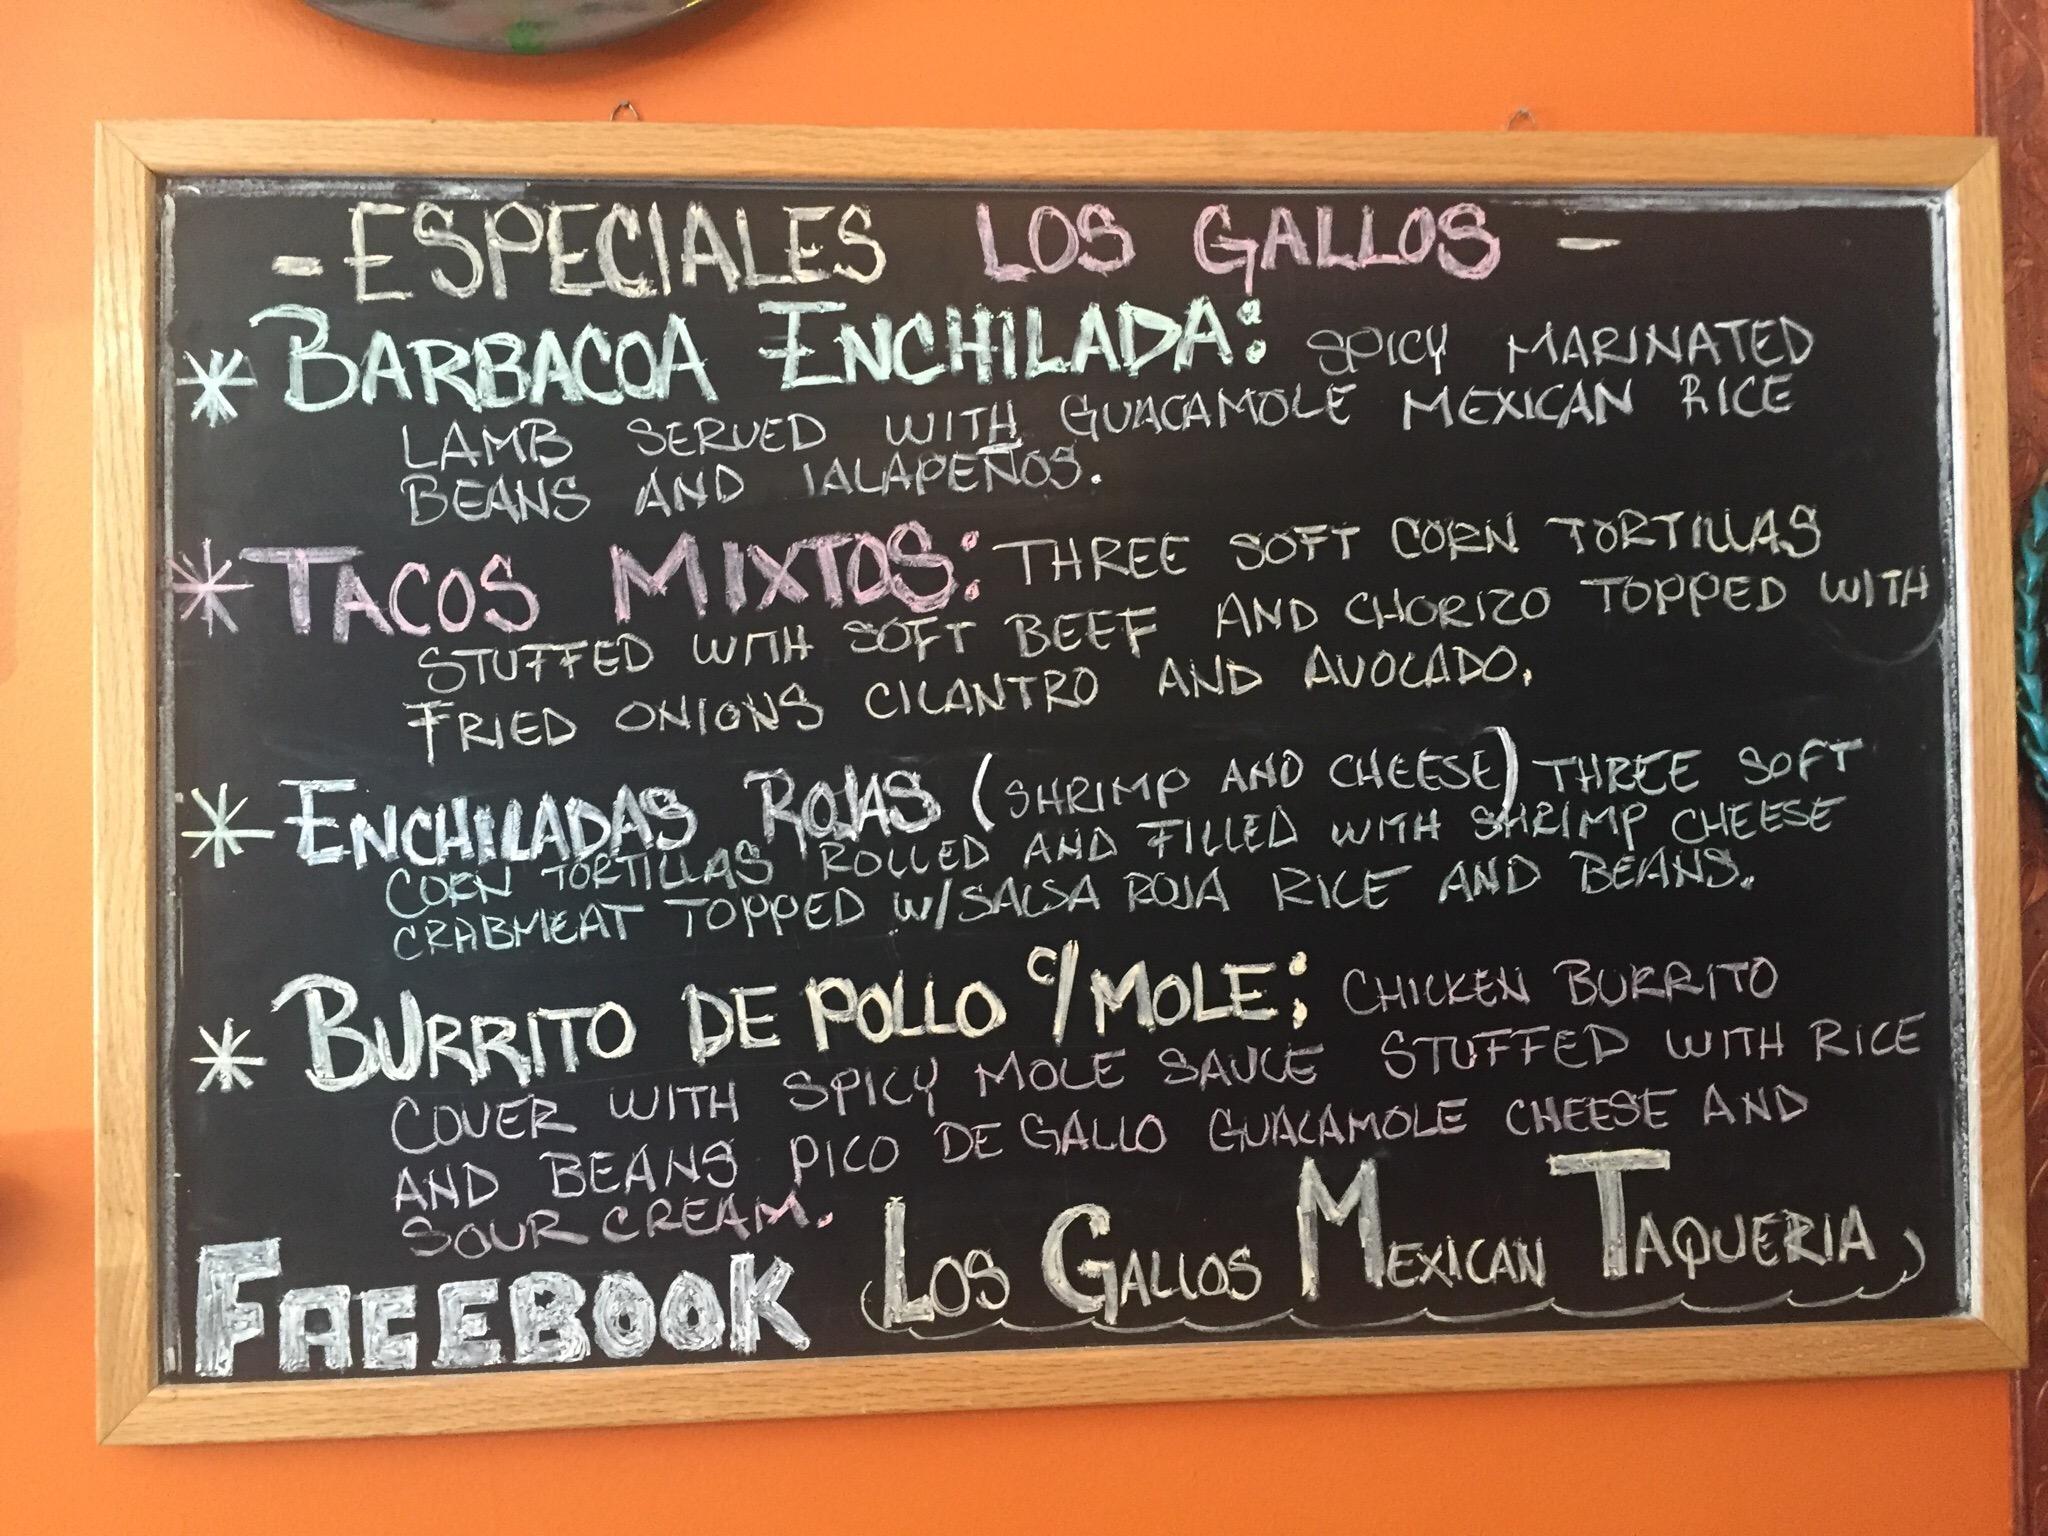 - ESPECIALES LOS GALLOS -
* BARBACOA ENCHILADA: SPICY MARINATED
LAMB SERVED WITH GUACAMOLE MEXICAN RICE
BEANS AND JALAPEÑOS.
* TACOS MIXTOS: THREE SOFT CORN TORTILLAS
STUFFED WITH SOFT BEEF AND CHORIZO TOPPED WITH
FRIED ONIONS CILANTRO AND AVOCADO.
* ENCHILADAS ROJAS (SHRIMP AND CHEESE) THREE SOFT
CORN TORTILLAS ROLLED AND FILLED WITH SHRIMP CHEESE
CRABMEAT TOPPED W/SALSA ROJA RICE AND BEANS.
* BURRITO DE POLLO C/MOLE: CHICKEN BURRITO
COVER WITH SPICY MOLE SAUCE STUFFED WITH RICE
AND BEANS PICO DE GALLO GUACAMOLE CHEESE AND
SOUR CREAM.
FACEBOOK LOS GALLOS MEXICAN TAQUERIA